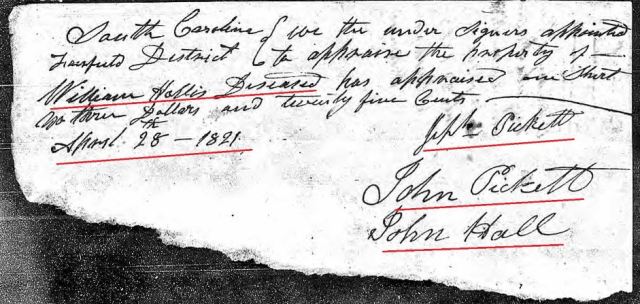 South Carolina { we the under Signers appointed
Fairfield District { to appraise the property of —
William Hollis Diseased has appraised
three Dollars and twenty five Cents.
April 28 — 1821
Jeph Pickett
John Pickett
John Hall